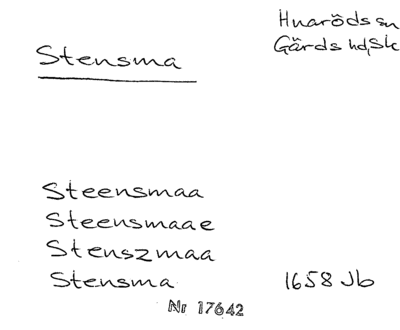 Hnarödssn
Gärdshd, Sk
Stensma
Steensmaa
Steensmaae
Stenszmaa
Stensma 1658 Jb
Nr 17642